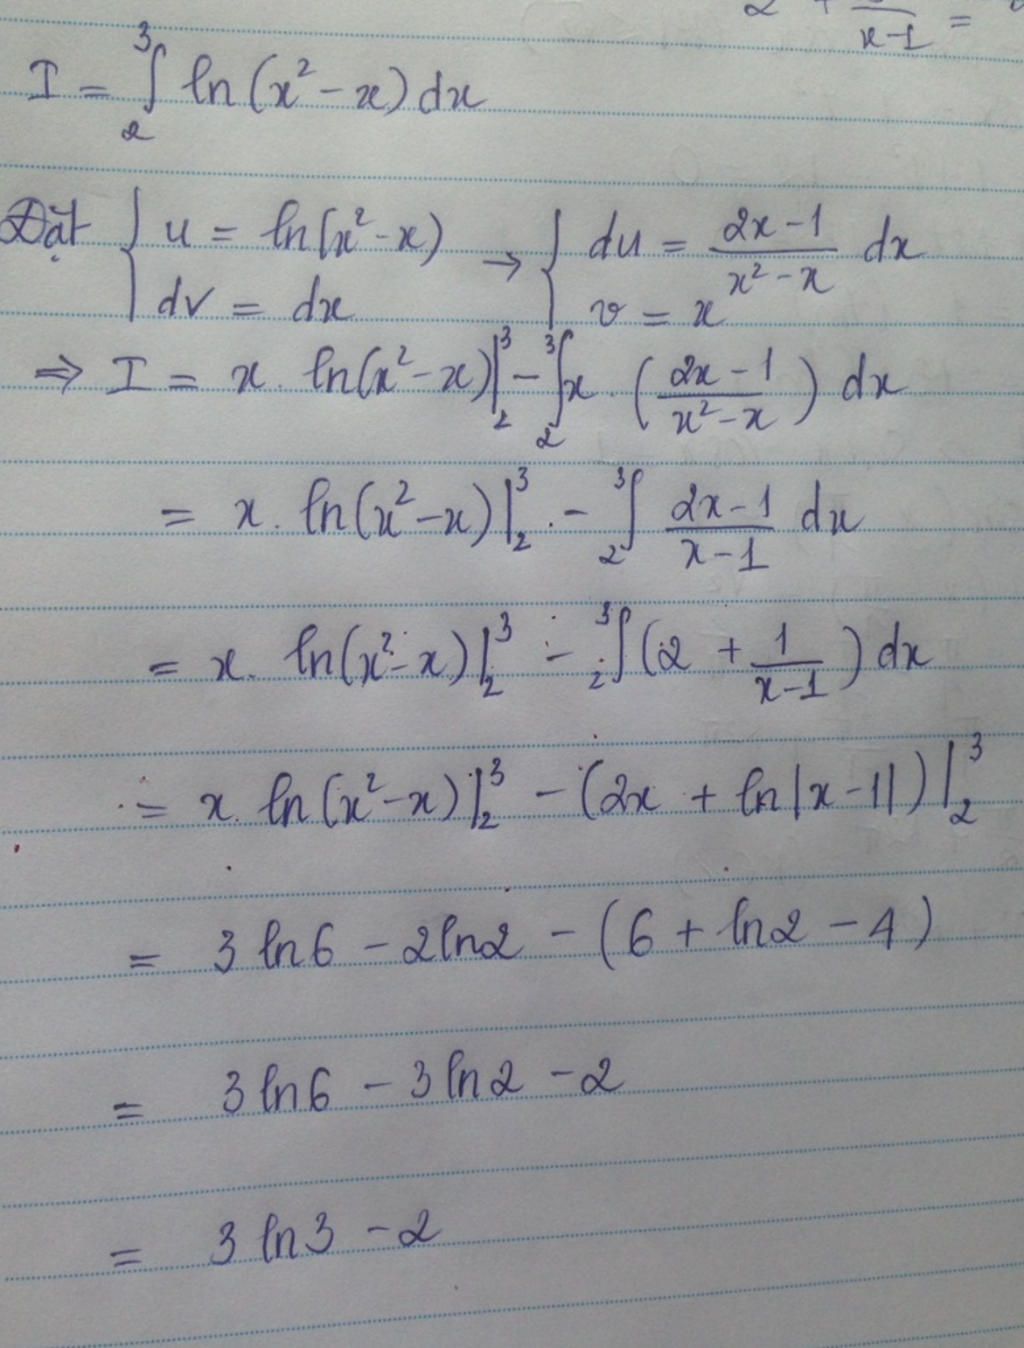 2 + —/(x-1) =
I = ∫₂³ ln(x² - x) dx
Đặt { u = ln(x² - x) ; dv = dx → { du = (2x-1)/(x² - x) dx ; v = x
⇒ I = x. ln(x² - x)|₂³ - ∫₂³ x. ((2x - 1)/(x² - x)) dx
= x. ln(x² - x)|₂³ . - ∫₂³ (2x-1)/(x-1) dx
= x. ln(x² - x)|₂³ - ∫₂³ (2 + 1/(x-1)) dx
= x. ln(x² - x)|₂³ - (2x + ln|x-1|)|₂³
= 3 ln6 - 2ln2 - (6 + ln2 - 4)
= 3 ln6 - 3 ln2 - 2
= 3 ln3 - 2